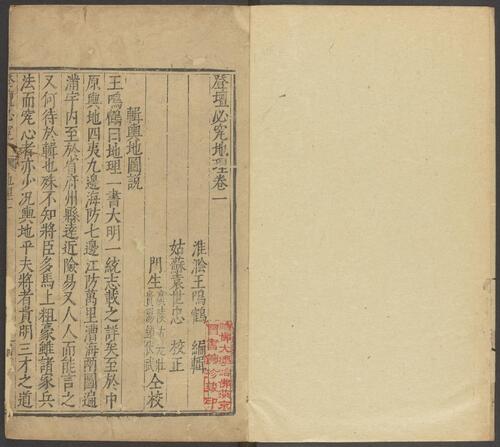 登壇必究地理卷一
淮淞王鳴鶴 編輯
姑蘇袁世忠 校正
門生 仝校
輯輿地圖說
王鳴鶴曰地理一書大明一統志載之詳矣至於中
原輿地四夷九邊海防七邊江防萬里漕海南圖遍
滿宇內至於省府州縣遠近險易又人人而能言之
又何待於輯也殊不知將臣多馬上粗豪雖諸家兵
法而究心者亦少況輿地乎夫將者貴明三才之道